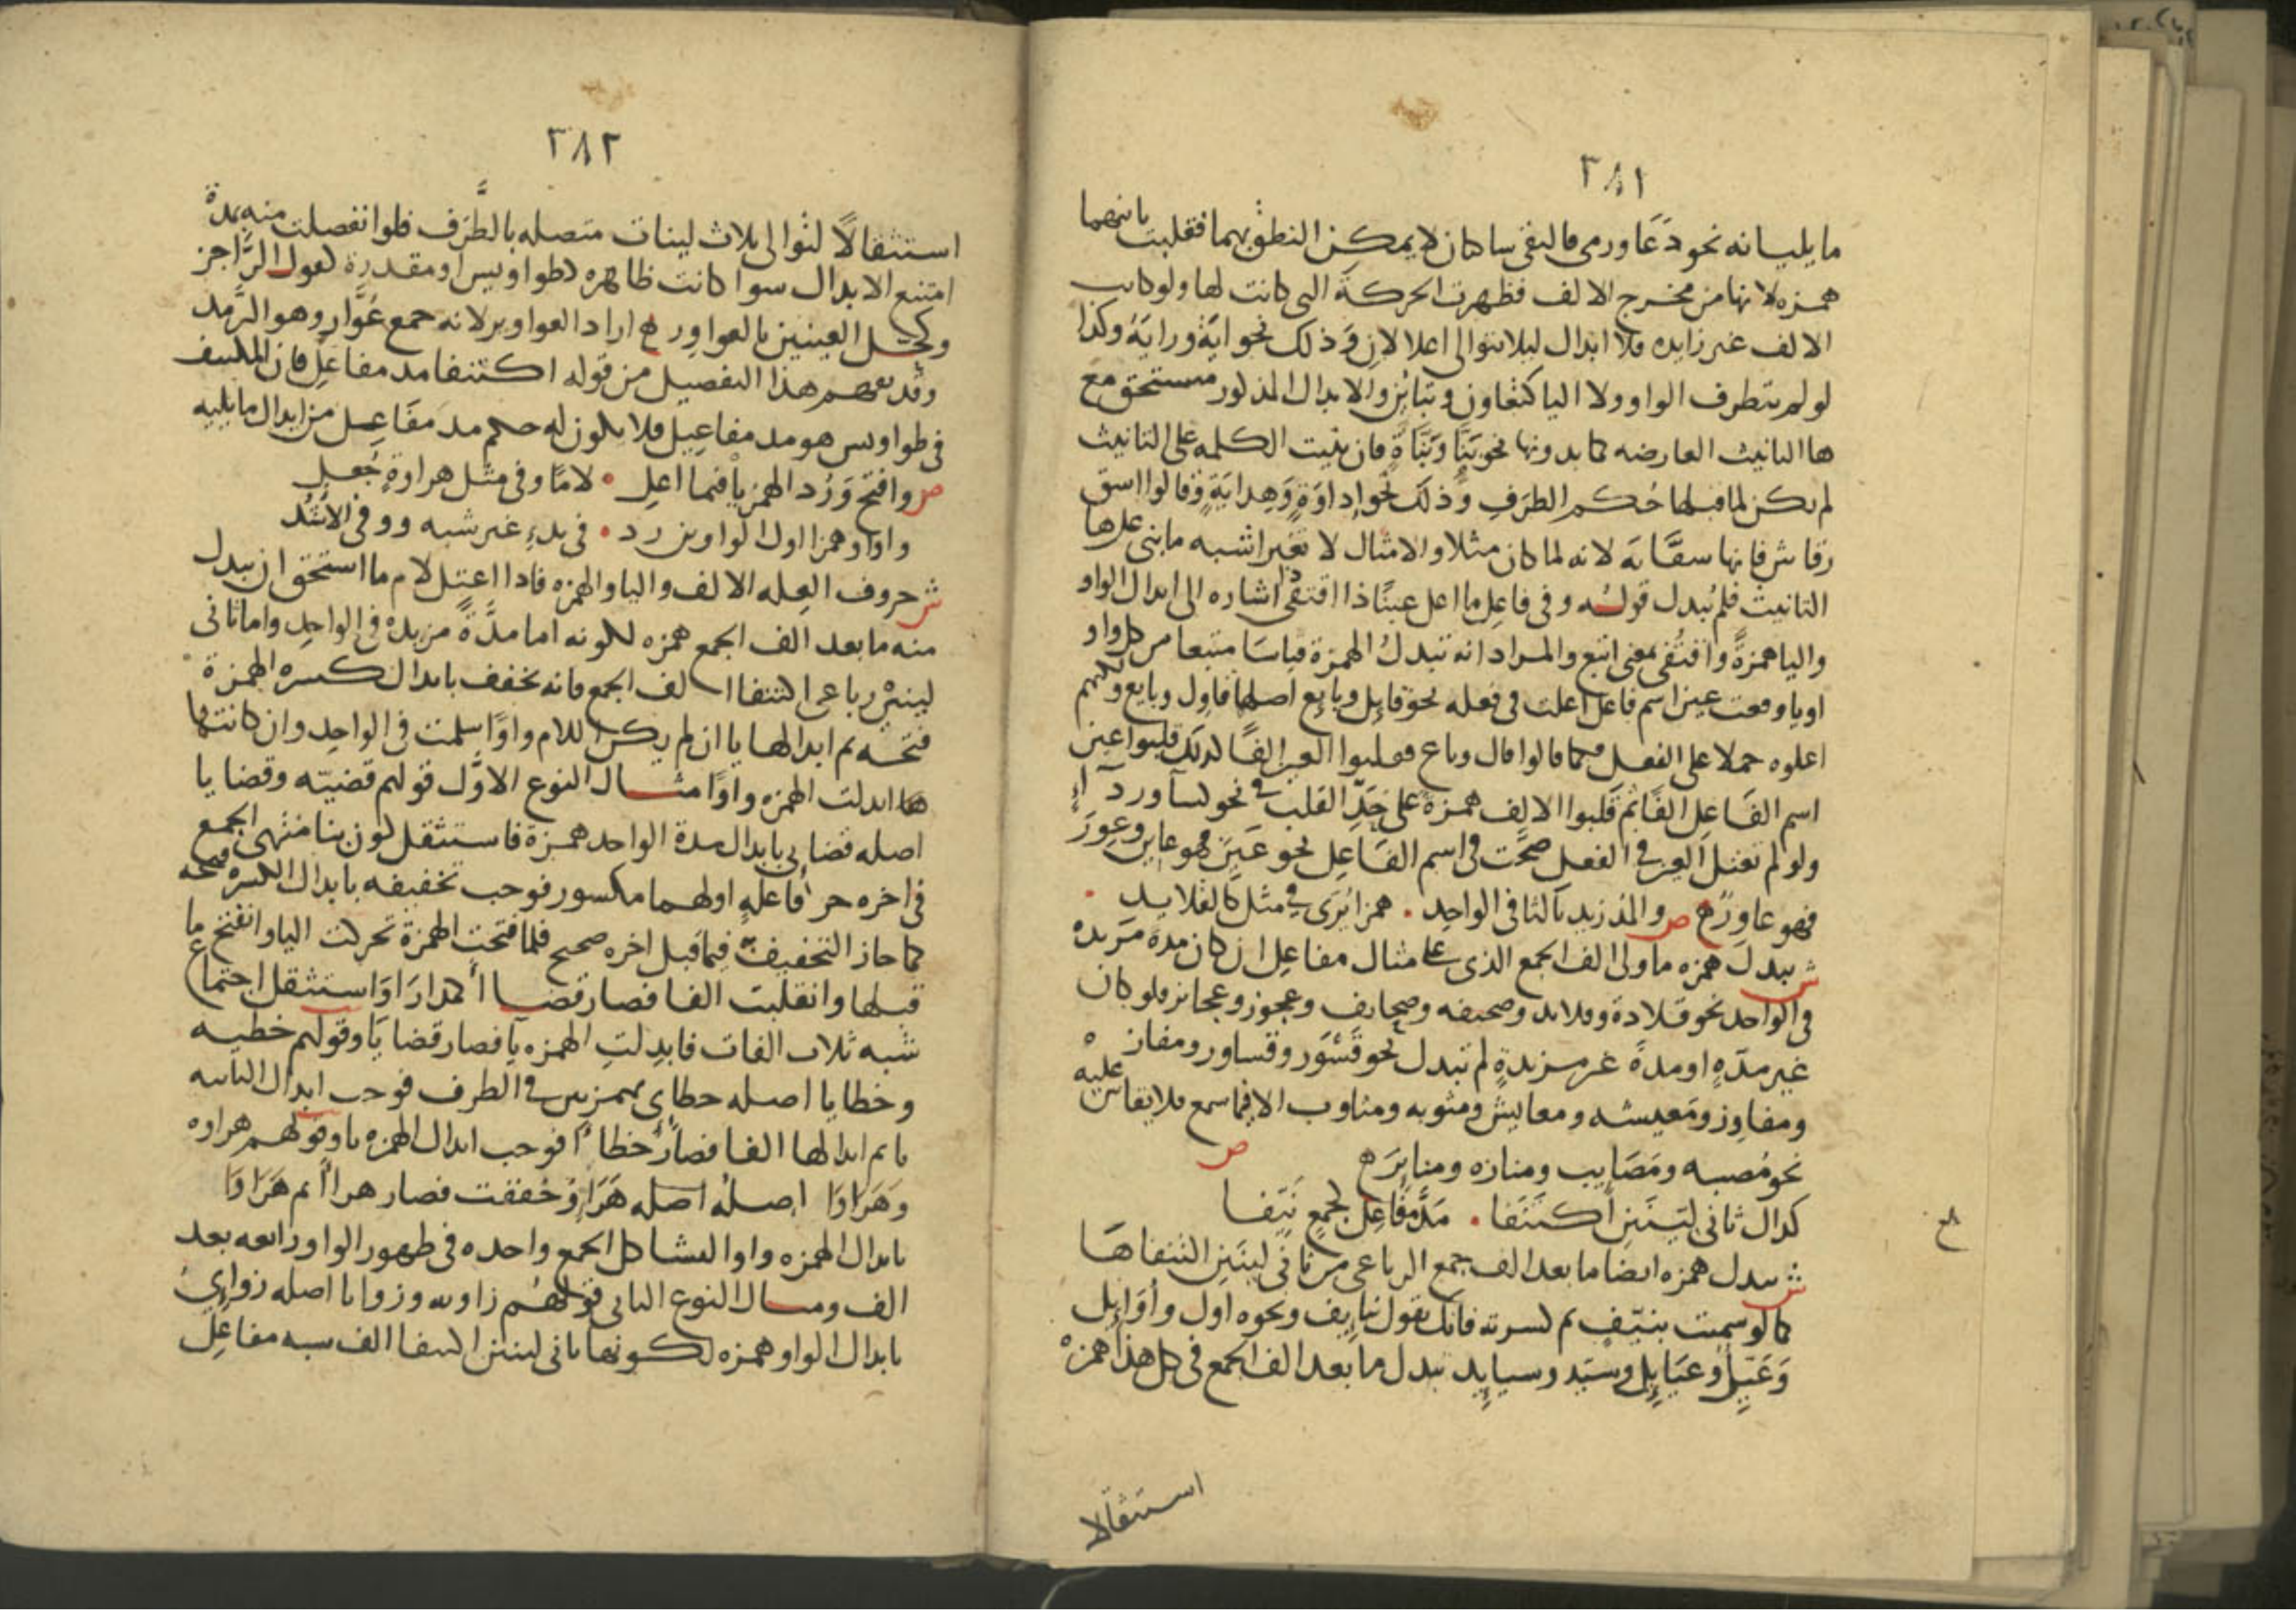 ٣٨١
ما يليانه نحو دعا ورمى فالتقى ساكنان لا يمكن النطق بهما فقلبت ثانيهما
همزه لانها من مخرج الالف فظهرت الحركة التى كانت لها ولو كانت
الالف غير زايده فلا ابدال ليلا يتوالى اعلالان وذلك نحو اية وراية وكذا
لو لم يتطرف الواو ولا اليا كتعاون وتباين والابدال المذكور مستحق مع
ها التانيث العارضه كما بدونها نحو بنّا وبنّاة فان بنيت الكلمه على التانيث
لم يكن لما قبلها حكم الطرف وذلك نحو اداوة وهداية وقالوا اسق
رقاش فانها سقّاية لانه لما كان مثلا والامثال لا تغير اشبه ما بنى على ها
التانيث فلم يبدل قوله وفى فاعل ما اعل عينًا ذا اقتفى اشاره الى ابدال الواو
واليا همزةً واقتفى بمعنى اتبع والمراد انه تبدل الهمزة قياسا متبعا من كل واو
او يا وقعت عين اسم فاعل اعلت فى فعله نحو قايل وبايع اصلها قاول وبايع ولكنهم
اعلوه حملا على الفعل فكما قالوا قال وباع فقلبوا العين الفًا كذلك قلبوا عين
اسم الفاعل الفًا ثم قلبوا الالف همزة على حدّ القلب فى نحو كسآ وردآء
ولو لم تعتل العين فى الفعل صحّت فى اسم الفاعل نحو عين فهو عاين وعور
فهو عاور ه ص والمد زيد ثالثا فى الواحد . همزا يرى فى مثل كالقلايد .
ش يبدل همزه ما ولى الف الجمع الذى على مثال مفاعل ان كان مدة مزيده
فى الواحد نحو قلادة وقلايد وصحيفه وصحايف وعجوز وعجايز فلو كان
غير مدّه او مدة غير مزيدة لم تبدل نحو قسور وقساور ومفازه
ومفاوز ومعيشه ومعايش ومثوبه ومثاوب الا فيما سمع فلا يقاس عليه
نحو مصيبه ومصايب ومناره ومناير ه ص
كذاك ثانى لينين اكتنفا . مدّ مفاعل كجمع نيّفا
ش يبدل همزه ايضا ما بعد الف جمع الرباعى من ثانى لينين اكتنفاها
كما لو سميت بنيّف ثم كسرته فانك تقول نيايف ونحوه اول واوايل
وعيّل وعيايل وسيّد وسيايد يبدل ما بعد الف الجمع فى كل هذا همزه
استثقالا
٣٨٢
استثقالًا لتوالى ثلاث لينات متصله بالطّرف فلو انفصلت منه بمدة
امتنع الابدال سوا كانت ظاهره كطواويس او مقدرة كقول الرّاجز
وكحل العينين بالعواور ه اراد العواوير لانه جمع عوّار وهو الرّمد
وقد يفهم هذا التفصيل من قوله اكتنفا مد مفاعل فان المكتنف
فى طواويس هو مد مفاعيل فلا يكون له حكم مد مفاعل من ابدال ما يليه
ص وافتح وردّ الهمز يا فيما اعل . لامًا وفى مثل هراوة جعل
واوا وهمزا اول الواوين رد . فى بدء غير شبه ووفى الاشد
ش حروف العله الالف والياوالهمزه فاذا اعتل لام ما استحق ان يبدل
منه ما بعد الف الجمع همزه لكونه اما مدّة مزيده فى الواحد واما ثانى
لينين رباعى اكتنفا الف الجمع فانه يخفف بابدال كسره الهمزة
فتحه ثم ابدالها يا ان لم يكن اللام واوًا سلمت فى الواحد وان كانتها
هنا ابدلت الهمزه واوًا مثال النوع الاوّل قولهم قضيّه وقضايا
اصله قضايى بابدال مدة الواحد همزة فاستثقل كون بنا منتهى الجمع
فى اخره حرفا عله اولهما مكسور فوجب تخفيفه بابدال الكسره فتحه
كما جاز التخفيف فيما قبل اخره صحيح فلما فتحت الهمزة تحركت اليا وانفتح ما
قبلها وانقلبت الفا فصار قضاا كمدارا واستثقل اجتماع
شبه ثلاث الفات فابدلت الهمزه يا فصار قضايا وقولهم خطيه
وخطايا اصله خطاى بهمزتين فى الطرف فوجب ابدال الثانيه
يا ثم ابدالها الفا فصار خطاأ فوجب ابدال الهمزه يا وقولهم هراوه
وهراوا اصله اصله هراو خففت فصار هراأ ثم هراوا
بابدال الهمزه واوا ليشاكل الجمع واحده فى ظهور الواو رابعه بعد
الف ومثال النوع الثانى قولهم زاويه وزوايا اصله زواىى
بابدال الواو همزه لكونها ثانى لينين اكتنفا الف شبه مفاعل